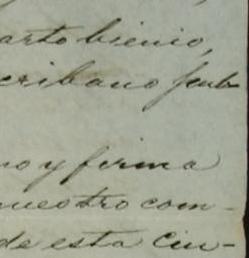 arto bienio,
cribano pub
no y firma
nuestro com-
de esta Ciu-